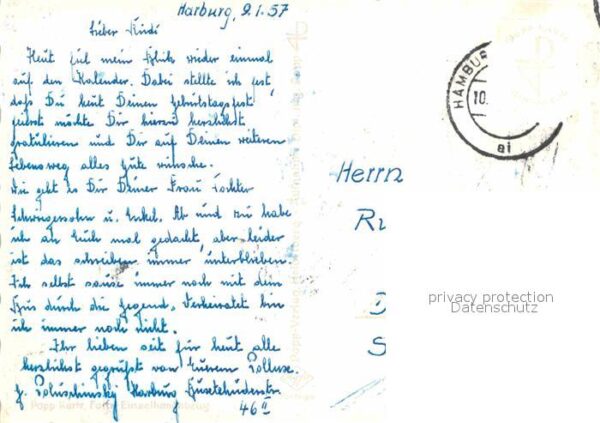 Harburg, 9.1.57
Lieber Rudi
Heut fiel mein Blick wieder einmal
auf den Kalender. Dabei stellte ich fest,
daß Du heut Deinen Geburtstagsfest
feierst möchte Dir hierzu herzlichst
gratulieren und Dir auf Deinen weiteren
Lebensweg alles Gute wünsche.
Wie geht es Dir Deiner Frau Tochter
Schwiegersohn u. Enkel. Ab und zu habe
ich an Euch mal gedacht, aber leider
ist das schreiben immer unterblieben.
Ich selbst sause immer noch mit dem
Bus durch die Gegend, Verheiratet bin
ich immer noch nicht.
Ihr lieben seit für heut alle
herzlichst gegrüßt von Eurem
Harburg Buxtehuderstr.
46 II
HAMBU
10.
ai
Herrn
Ru
S
privacy protection
Datenschutz